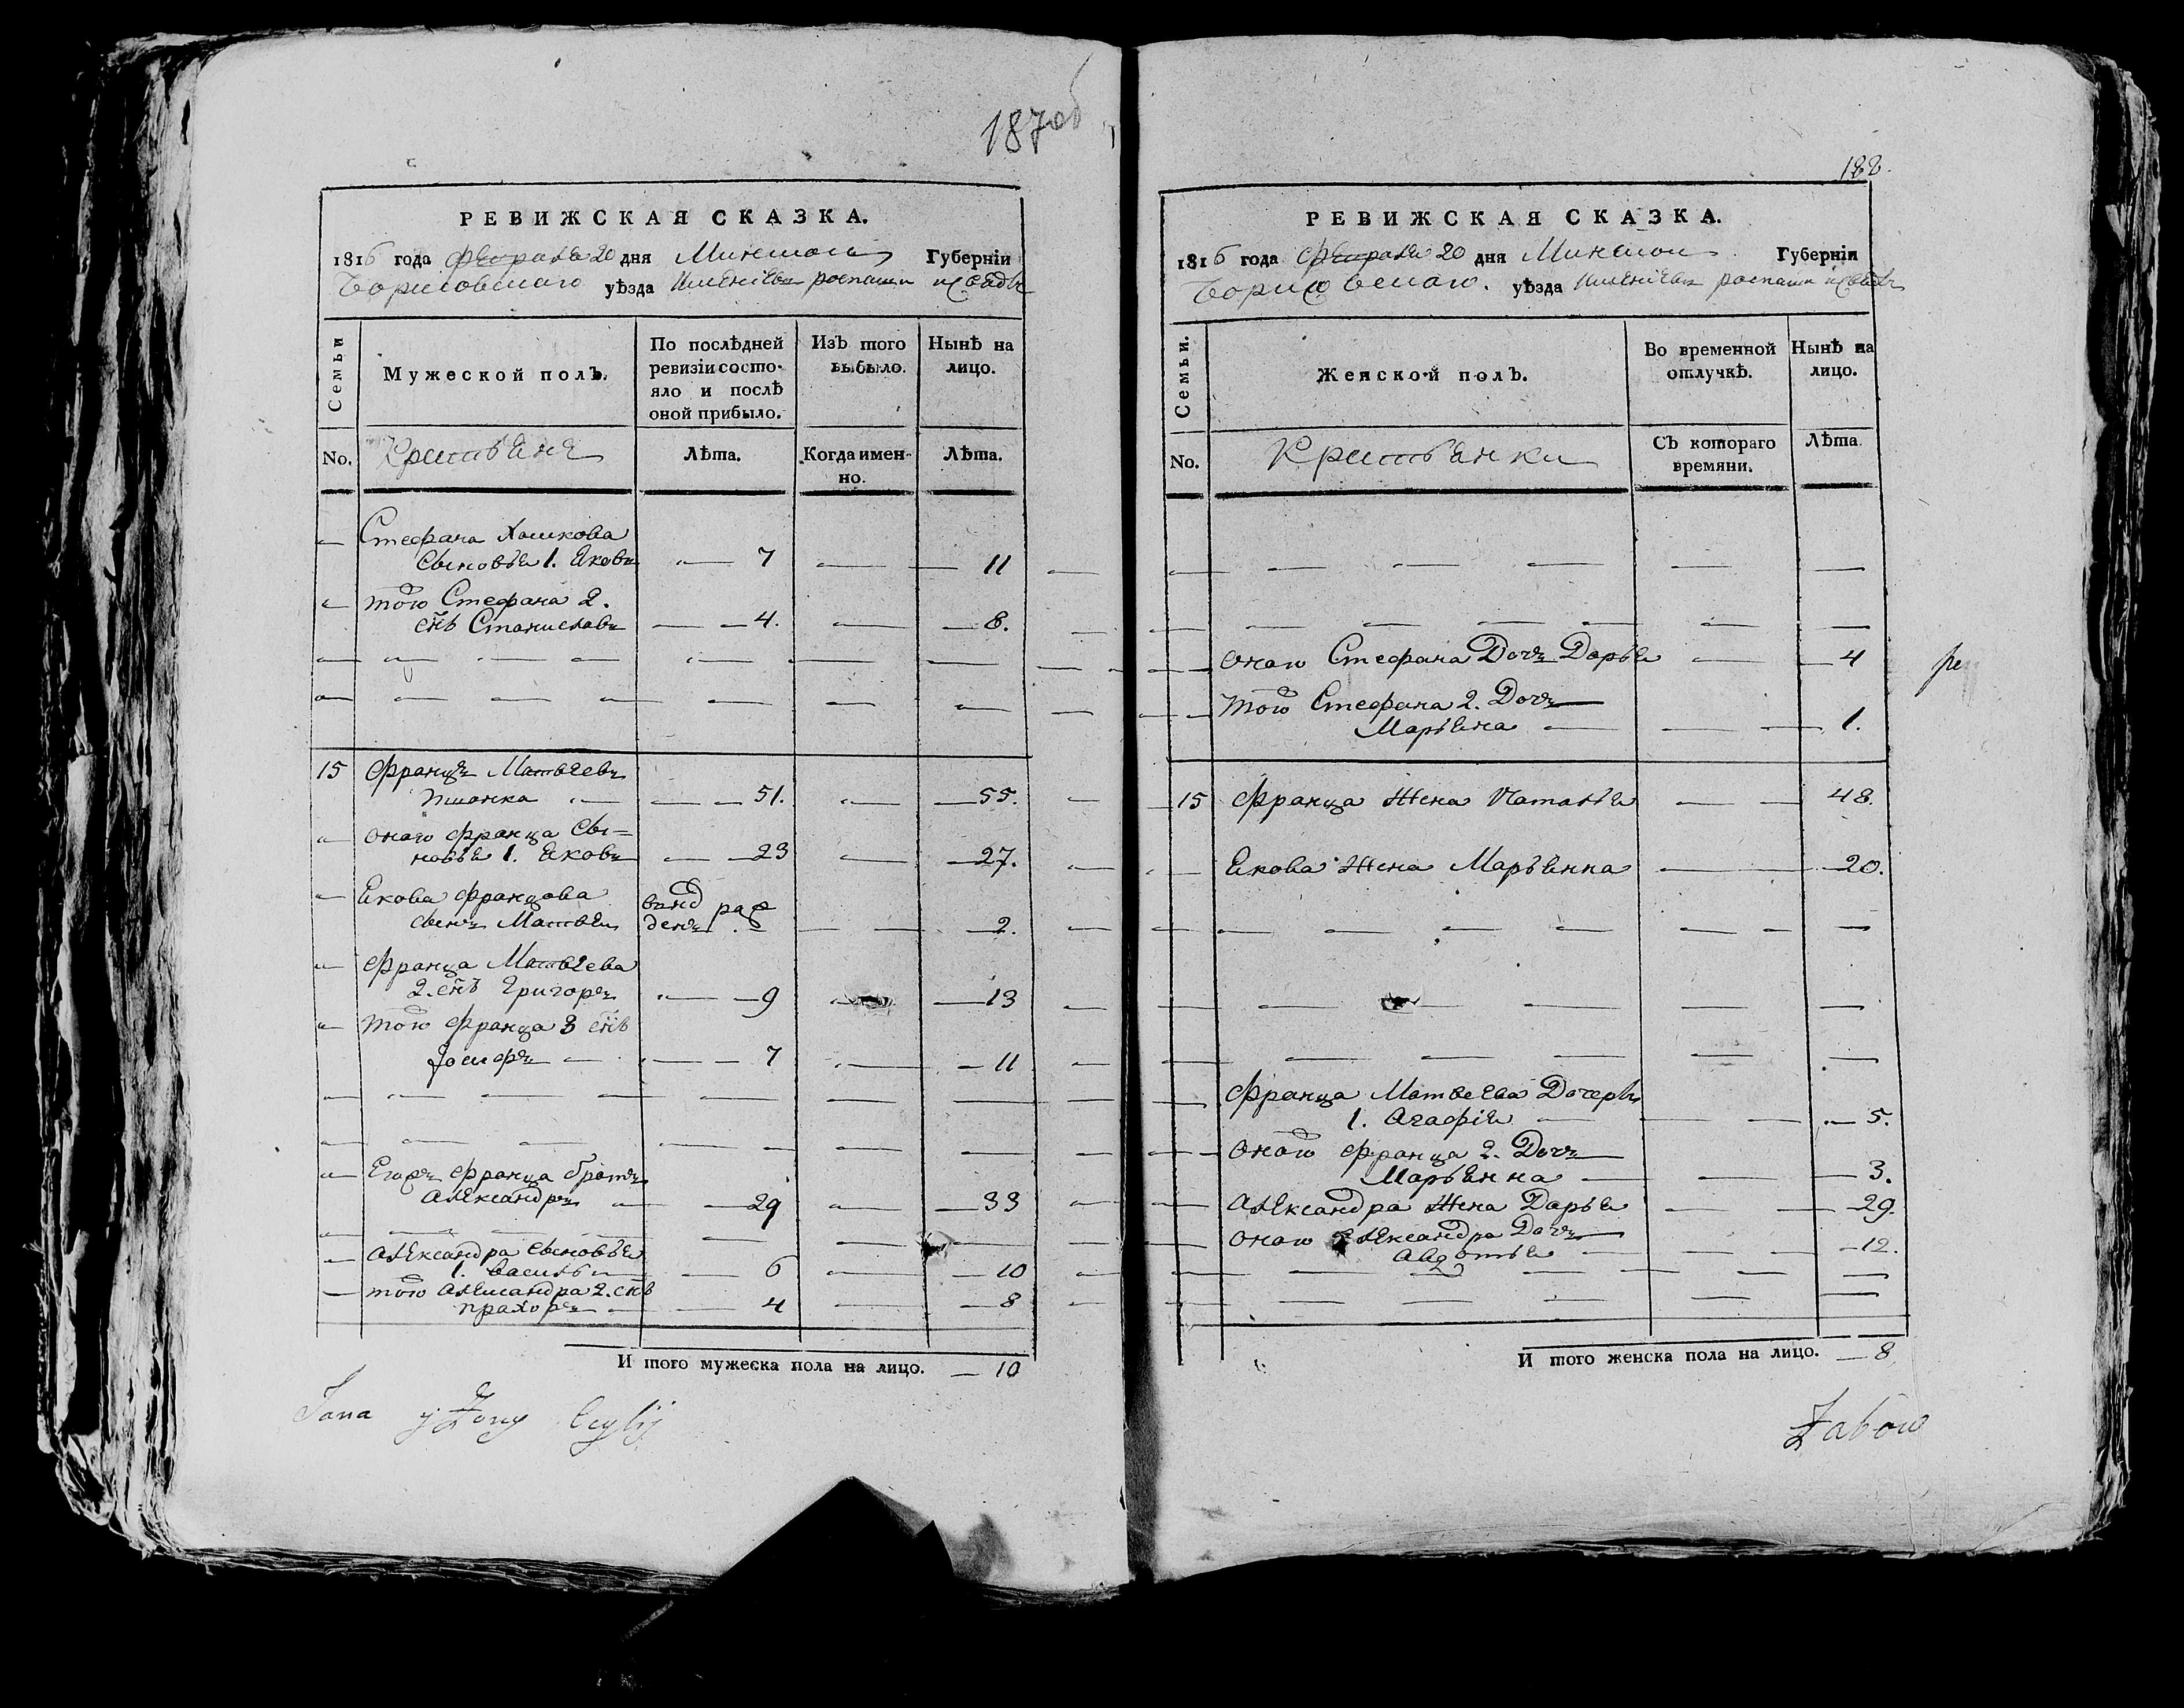 187об
РЕВИЖСКАЯ СКАЗКА.
1816 года февраля 20 дня Минской Губерніи
Борисовскаго уѣзда
Семьи
Мужеской полъ.
По послѣдней
ревизіи состо-
яло и послѣ
оной прибыло.
Изъ того
выбыло.
Нынѣ на
лицо.
No.
Крестьяне
Лѣта.
Когда имен-
но.
Лѣта.
Стефана Хоцкова
Сыновья 1. Яковъ 7 11
того Стефана 2.
снъ Станиславъ 4. 8.
15 Францъ Матвеевъ
51. 55.
онаго Франца Сы=
новья 1. Яковъ 23 27.
Якова Францова
сынъ Матвей 2.
Франца Матвеева
2. снъ Григоръ 9 13
того Франца 3 снъ
Іосифъ 7 11
Егоръ Франца братъ
Александръ 29 33
Александра сыновья
1. Василь 6 10
того Александра 2. снъ
прахоръ 4 8
И того мужеска пола на лицо. 10
Jana y Żony
188.
РЕВИЖСКАЯ СКАЗКА.
1816 года февраля 20 дня Минской Губерніи
Борисовскаго. уѣзда
Семьи.
Женской полъ.
Во временной
отлучкѣ.
Нынѣ на
лицо.
No.
Крестьянки
Съ котораго
времяни.
Лѣта.
онаго Стефана Дочъ Дарья 4
того Стефана 2. Дочъ
Марьяна 1.
15 Франца Жена Наталья 48.
Якова Жена Марьянна 20.
Франца Матвеева Дочеръи
1. Агафія 5.
онаго Франца 2. Дочъ
Марьянна 3.
Александра Жена Дарья 29.
онаго Александра Дочъ
Авдотья 12.
И того женска пола на лицо. 8
Żabow